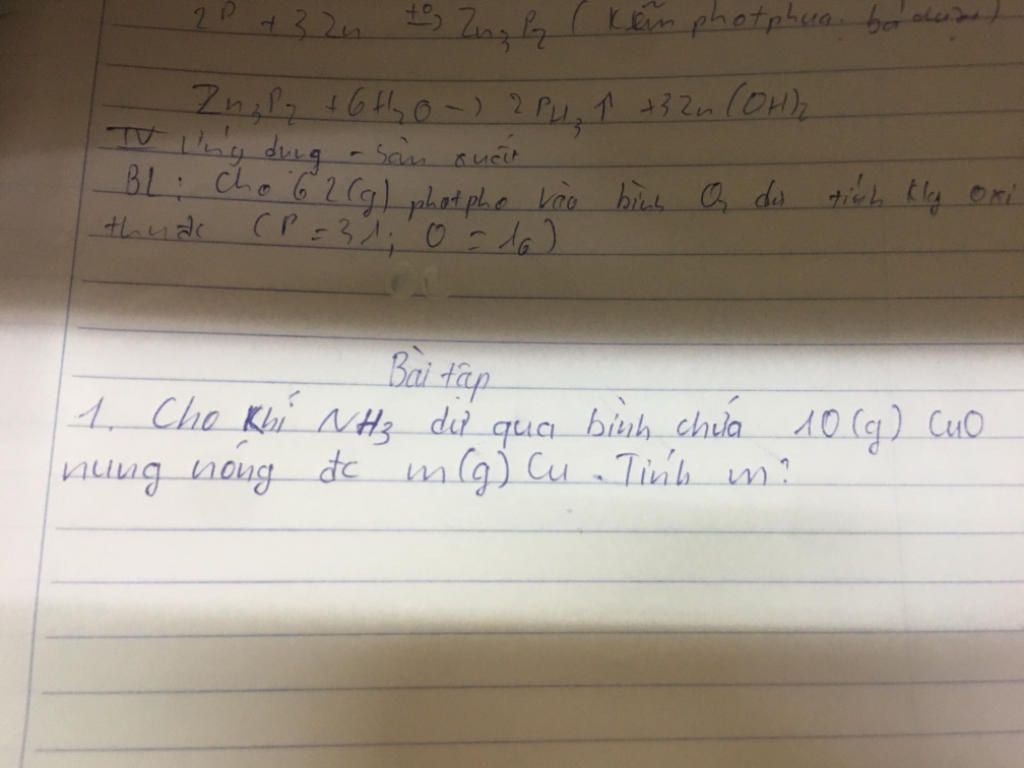 2P + 3Zn t°→ Zn₃P₂ (Kẽm photphua
Zn₃P₂ + 6H₂O → 2PH₃↑ + 3Zn(OH)₂
IV Ứng dụng - Sản xuất
BL: Cho 62(g) photpho vào bình O₂ dư tính klg oxi
thu đc (P = 31; O = 16)
Bài tập
1. Cho khí NH₃ dư qua bình chứa 10(g) CuO
nung nóng đc m(g) Cu. Tính m?